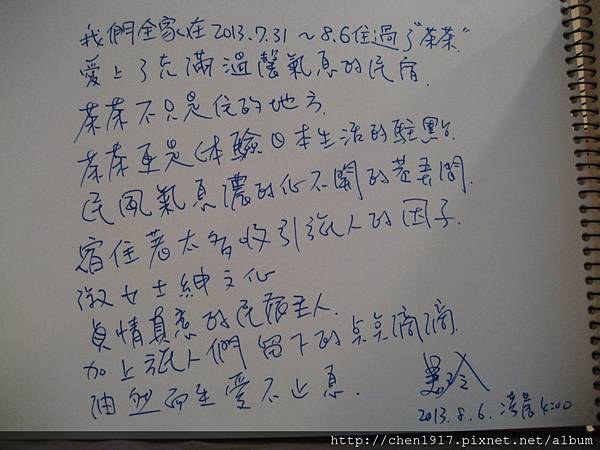 我們全家在2013.7.31～8.6住過了"茶茶"
愛上了充滿溫馨氣息的民宿
茶茶不只是住的地方
茶茶更是体驗日本生活的駐點.
民風氣息濃的化不開的巷弄間.
宿住著太多吸引旅人的因子.
淑女士紳文化
真情真意的民宿主人.
加上旅人們留下的点点滴滴.
油然而生愛不止息.
2013.8.6.清晨4:00
http://chen1917.pixnet.net/album